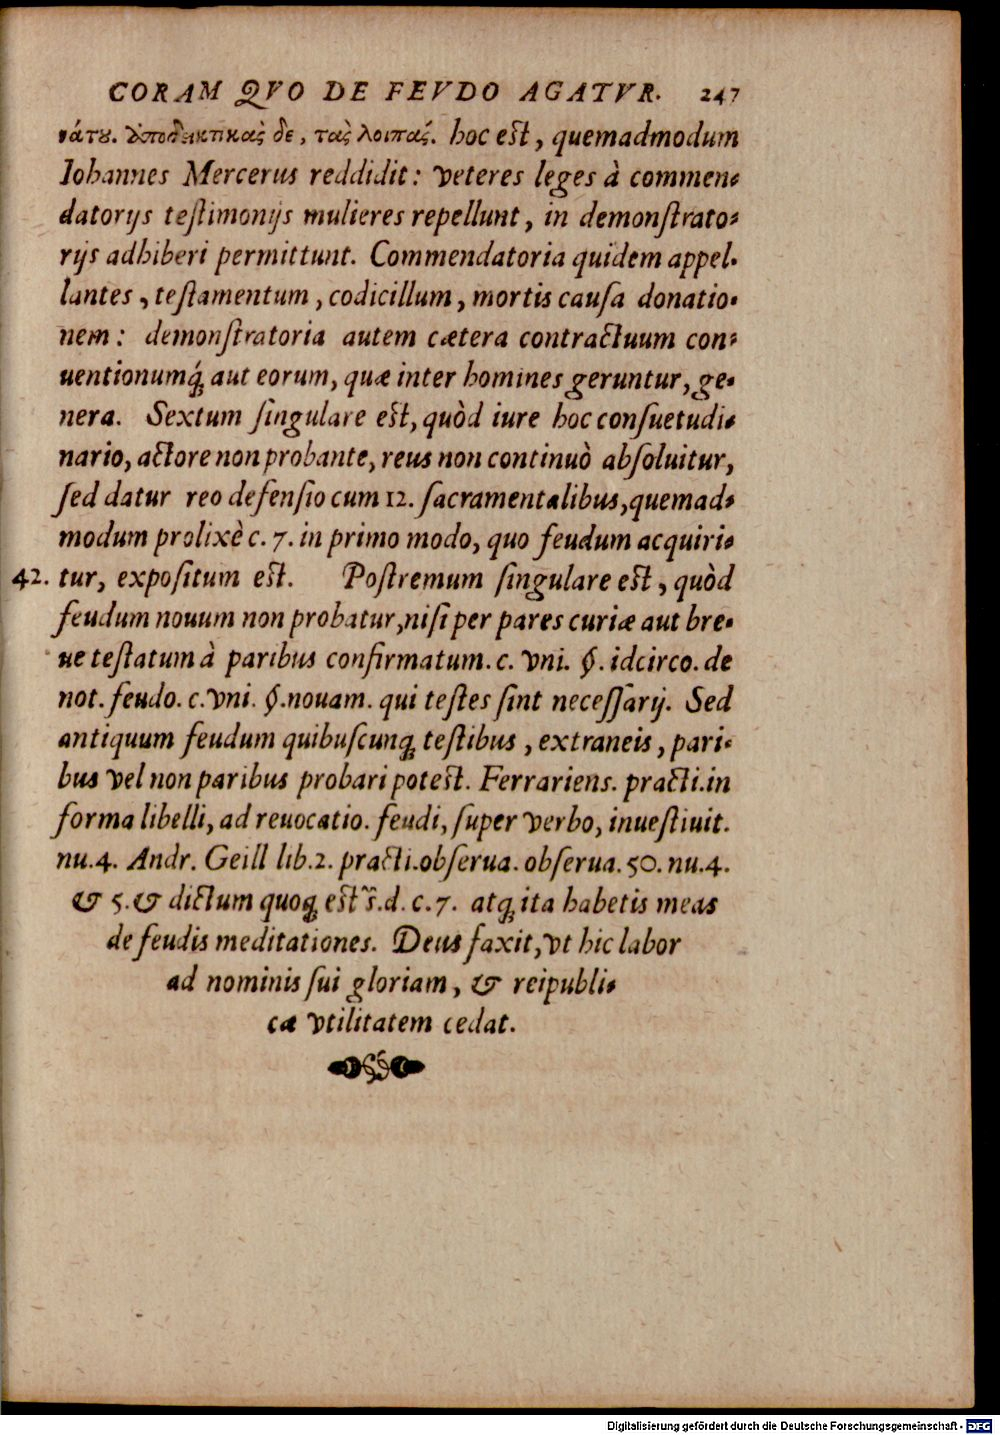 CORAM QVO DE FEVDO AGATVR. 247
νάτου. ὑποδεικτικὰς δε, τὰς λοιπάς. hoc est, quemadmodum
Iohannes Mercerus reddidit: veteres leges à commen-
datorijs testimonijs mulieres repellunt, in demonstrato-
rijs adhiberi permittunt. Commendatoria quidem appel-
lantes, testamentum, codicillum, mortis causa donatio-
nem: demonstratoria autem cætera contractuum con-
uentionumq́; aut eorum, quæ inter homines geruntur, ge-
nera. Sextum singulare est, quòd iure hoc consuetudi-
nario, actore non probante, reus non continuò absoluitur,
sed datur reo defensio cum 12. sacramentalibus, quemad-
modum prolixè c. 7. in primo modo, quo feudum acquiri-
42. tur, expositum est. Postremum singulare est, quòd
feudum nouum non probatur, nisi per pares curiæ aut bre-
ue testatum à paribus confirmatum. c. vni. §. idcirco. de
not. feudo. c. vni. §. nouam. qui testes sint necessarij. Sed
antiquum feudum quibuscunq; testibus, extraneis, pari-
bus vel non paribus probari potest. Ferrariens. practi. in
forma libelli, ad reuocatio. feudi, super verbo, inuestiuit.
nu. 4. Andr. Geill lib. 2. practi. obserua. obserua. 50. nu. 4.
& 5. & dictum quoq; est s̃. d. c. 7. atq; ita habetis meas
de feudis meditationes. Deus faxit, vt hic labor
ad nominis sui gloriam, & reipubli-
cæ vtilitatem cedat.
Digitalisierung gefördert durch die Deutsche Forschungsgemeinschaft - DFG